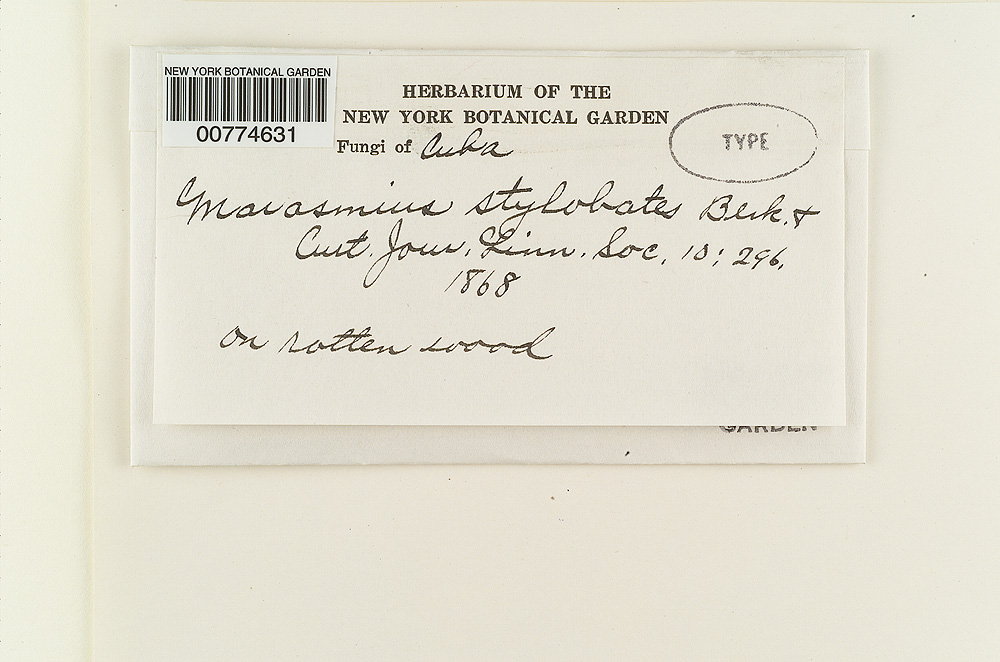 NEW YORK BOTANICAL GARDEN
00774631
HERBARIUM OF THE
NEW YORK BOTANICAL GARDEN
Fungi of Cuba
TYPE
Marasmius stylobates Berk. &
Curt. Jour. Linn. Soc. 10: 296.
1868
On rotten wood
GARDEN